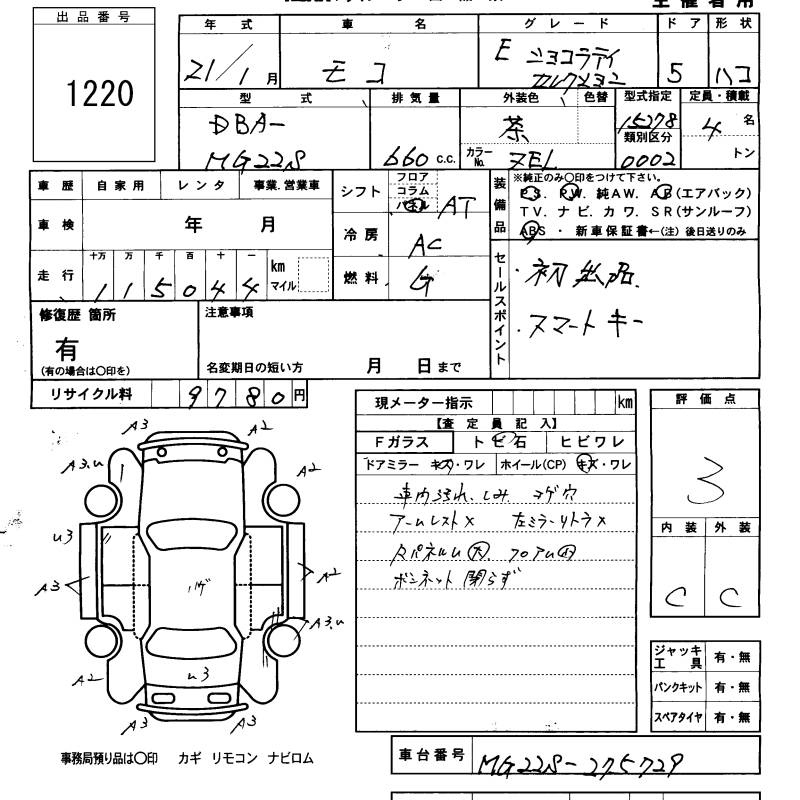 出品番号
1220
年式 車名 グレード ドア 形状
21/1月 モコ E ショコラティ コレクション 5 ハコ
型式 排気量 外装色 色替 型式指定 定員・積載
DBA-
MG22S 660 c.c. 茶 カラーNo. ZEL 15278 類別区分 0002 4名 トン
車歴 自家用 レンタ 事業.営業車
車検 年 月
走行 十万 万 千 百 十 一 km マイル
115044
シフト フロア コラム パネル AT
冷房 AC
燃料 G
装備品 ※純正のみ〇印をつけて下さい。
PS. PW. 純AW. AB(エアバック)
TV. ナビ. カワ. SR(サンルーフ)
ABS ・ 新車保証書←(注) 後日送りのみ
セールスポイント
・初出品.
・スマートキー
修復歴 箇所
有
(有の場合は〇印を)
注意事項
名変期日の短い方 月 日まで
リサイクル料 9780円
現メーター指示 km
【査定員記入】
Fガラス トビ石 ヒビワレ
ドアミラー キズ・ワレ ホイール(CP) キズ・ワレ
車内ヨゴレ.しみ コゲ穴
アームレスト× 左ミラーリトラ×
RパネルU大. フロアU小
ボンネット閉らず
評価点
3
内装 外装
C C
A3 A2
A3.u A2
u3
A3 A2
ハゲ
A3.u
A2 u3
A3 A3
ジャッキ工具 有・無
パンクキット 有・無
スペアタイヤ 有・無
事務局預り品は〇印 カギ リモコン ナビロム
車台番号 MG22S-275729